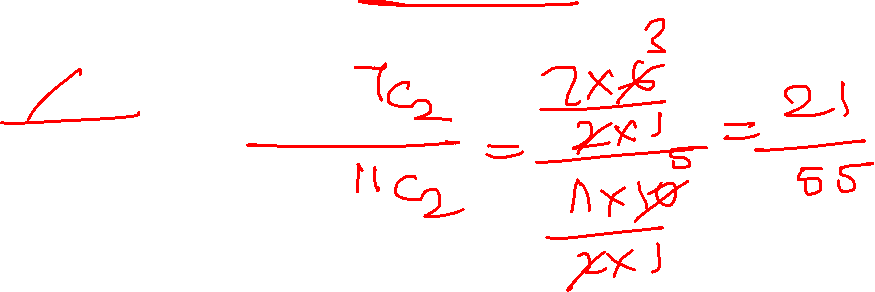 ⁷C₂ / ¹¹C₂ = (7×6 3 / 2×1) / (11×10 5 / 2×1) = 21 / 55